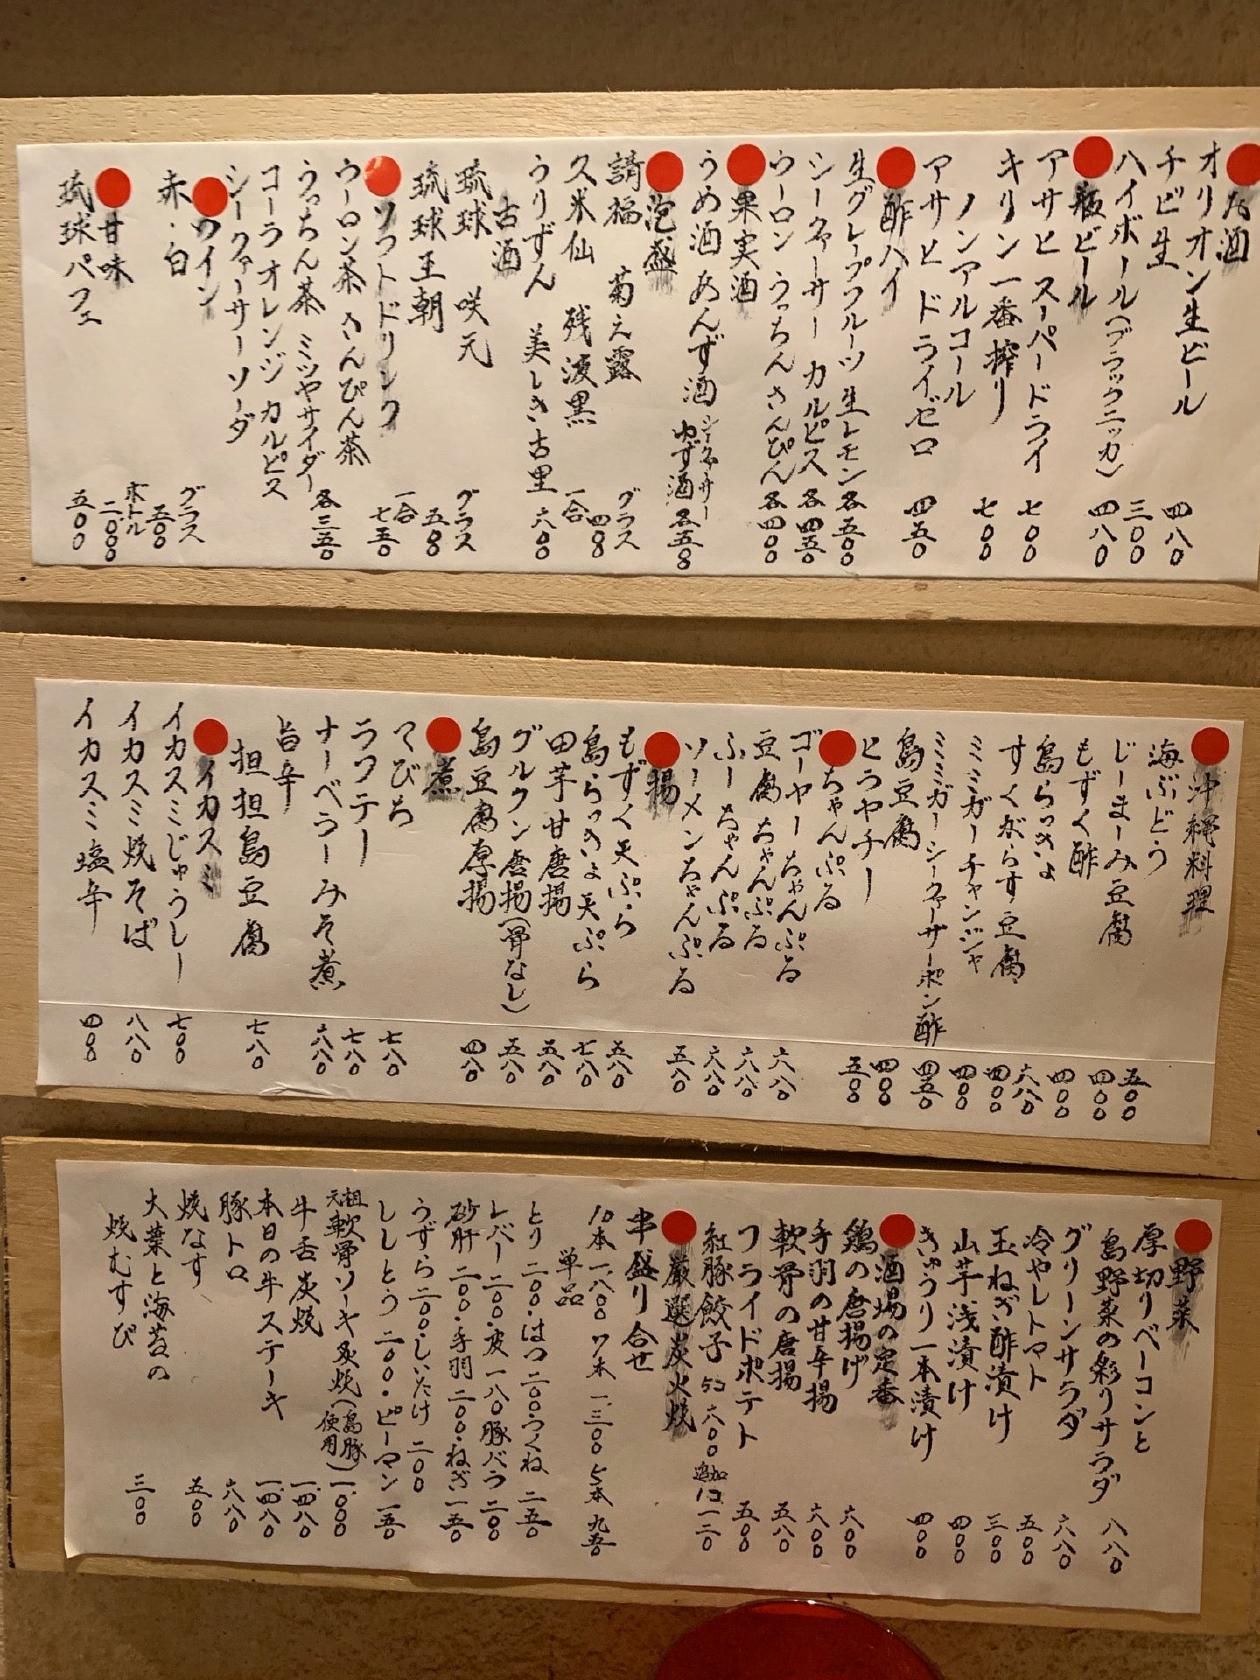 お酒
オリオン生ビール 四八〇
チビ生 三〇〇
ハイボール(ブラックニッカ) 四八〇
瓶ビール
アサヒスーパードライ 七〇〇
キリン一番搾り 七〇〇
ノンアルコール
アサヒドライゼロ 四五〇
酎ハイ
生グレープフルーツ 生レモン 各五〇〇
シークァーサー カルピス 各四五〇
ウーロン うっちん さんぴん 各四〇〇
果実酒
うめ酒 あんず酒 シークァーサー ゆず酒 各五五〇
泡盛
請福 菊之露 グラス 四〇〇
久米仙 残波黒 一合
うりずん 美しき古里 六〇〇
古酒
琉球 咲元 グラス 五五〇
琉球王朝 一合 七五〇
ソフトドリンク
ウーロン茶 さんぴん茶 各三五〇
うっちん茶 ミツヤサイダー
コーラ オレンジ カルピス
シークァーサーソーダ
ワイン
赤・白 グラス 五〇〇 ボトル 二、〇〇〇
甘味
琉球パフェ 五〇〇
沖縄料理
海ぶどう 五〇〇
じーまーみ豆腐 四〇〇
もずく酢 四〇〇
島らっきょ 六八〇
すくがらす豆腐 四〇〇
ミミガーチャンジャ 四〇〇
ミミガーシークァーサーポン酢 四五〇
島豆腐 四〇〇
ヒラヤチー 五〇〇
ちゃんぷる
ゴーヤーちゃんぷる 六八〇
豆腐ちゃんぷる 六八〇
ふーちゃんぷる 六八〇
ソーメンちゃんぷる 五八〇
揚
もずく天ぷら 五八〇
島らっきょ天ぷら 七八〇
田芋甘唐揚 五八〇
グルクン唐揚(骨なし) 五八〇
島豆腐厚揚 四八〇
煮
てびち 七八〇
ラフテー 七八〇
ナーベラーみそ煮 六八〇
旨辛
担担島豆腐 七八〇
イカスミ
イカスミじゅうしー 七〇〇
イカスミ焼そば 八八〇
イカスミ塩辛 四〇〇
野菜
厚切りベーコンと
島野菜の彩りサラダ 八八〇
グリーンサラダ 六八〇
冷やしトマト 五〇〇
玉ねぎ酢漬け 三〇〇
山芋浅漬け 四〇〇
きゅうり一本漬け 四〇〇
酒場の定番
鶏の唐揚げ 六〇〇
手羽の甘辛揚 六〇〇
軟骨の唐揚 五八〇
フライドポテト 五〇〇
紅豚餃子 5コ 六〇〇 追加1コ 一二〇
厳選炭火焼
串盛り合せ
10本 一、八〇〇 7本 一、三〇〇 5本 九五〇
単品
とり 二〇〇・はつ 二〇〇・つくね 二五〇
レバー 二〇〇・皮 一八〇 豚バラ 二〇〇
砂肝 二〇〇・手羽 二〇〇・ねぎ 一五〇
うずら 二〇〇・しいたけ 二〇〇
ししとう 二〇〇・ピーマン 一五〇
元祖 軟骨ソーキ炙焼(島豚使用) 一、〇〇〇
牛舌炭焼 一、四八〇
本日の牛ステーキ 一、四八〇
豚トロ 六八〇
焼なす 五〇〇
大葉と海苔の
焼むすび 三〇〇